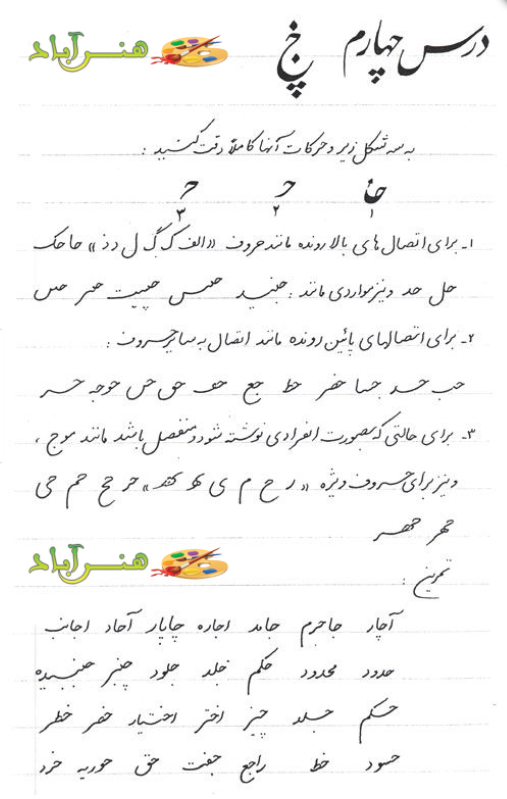 درس چهارم خ چ هنرآباد
به سه شکل زیر و حرکات آنها کاملاً دقت کنید :
حا حـ حـ
۱ ۲ ۳
۱ـ برای اتصال های بالا رونده مانند حروف «الف ک گ ل د ذ» حا حک
حل حد و نیز مواردی مانند :
۲ـ برای اتصالهای پائین رونده مانند اتصال به سایر حروف :
حب حسد جع حف حق حص
۳ـ برای حالتی که بصورت انفرادی نوشته شود و منفصل باشد مانند موج ،
و نیز برای حروف ویژه « ر ح م ی » حر حج حم حی
هنرآباد
تمرین :
آچار جاجرم جامد اجاره چاپار آحاد اجانب
حدود محدود حکم خلد جلود چنبر جنبیده
جسد چیز اختر اختیار خضر خطر
حسود خط راجع جفت حق حوریه خرد